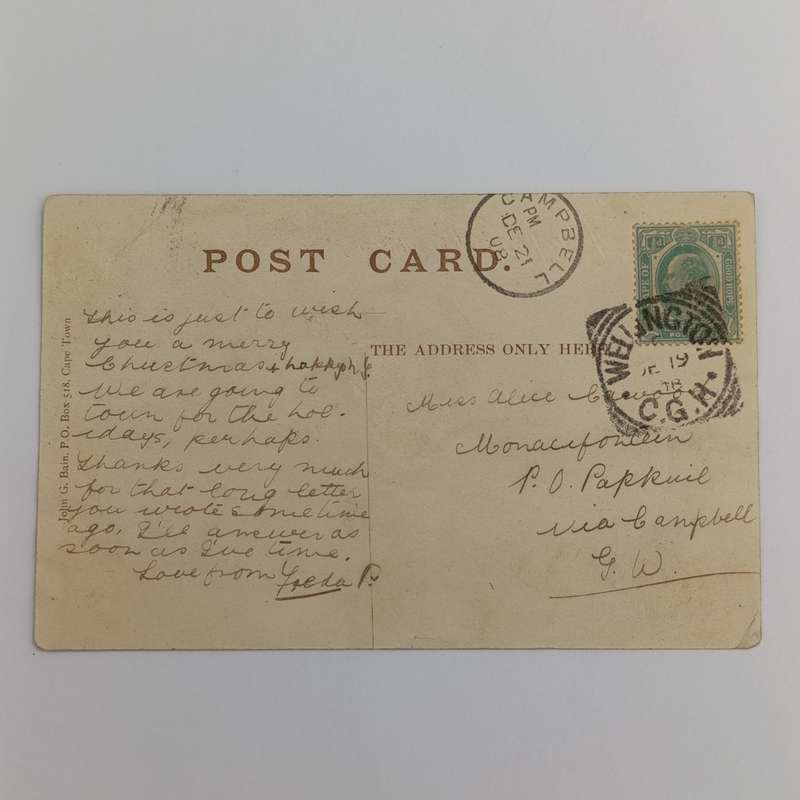 CAMPBELL
PM
DE 21
08
POST CARD.
THE ADDRESS ONLY HERE
WELLINGTON
DE 19
08
C.G.H.
John G. Bain, P.O. Box 518, Cape Town
This is just to wish
you a merry
Christmas & happy
We are going to
town for the hol-
idays, perhaps.
Thanks very much
for that long letter
you wrote sometime
ago, I'll answer as
soon as I've time.
Love from Freda P.
Miss Alice
P. O. Papkuil
Via Campbell
G. W.